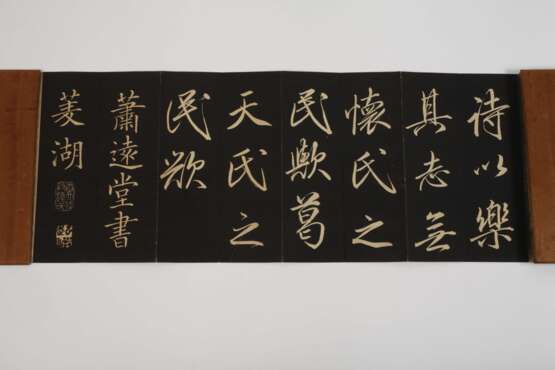 詩以樂
其志無
懷氏之
民歟葛
天氏之
民歟
蕭遠堂書
菱湖